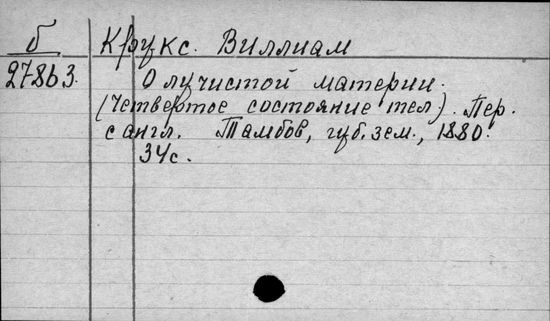 б
27863.
Крукс. Виллиам
О лучистой материи.
(Четвертое состояние тел). Пер.
с англ. Тамбов, губ. зем., 1880.
34 с.